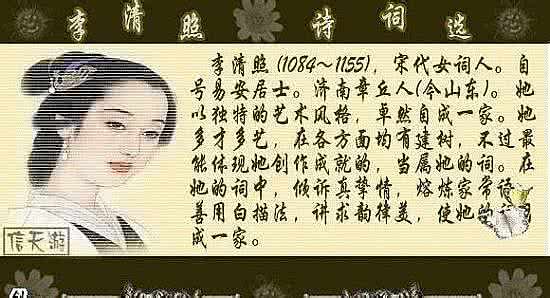 李清照诗词选
李清照(1084~1155)，宋代女词人。自
号易安居士。济南章丘人(今山东)。她
以独特的艺术风格，卓然自成一家。她
多才多艺，在各方面均有建树，不过最
能体现她创作成就的，当属她的词。在
她的词中，倾诉真挚情，熔炼家常语
善用白描法，讲求韵律美，使她的词
成一家。
信天游